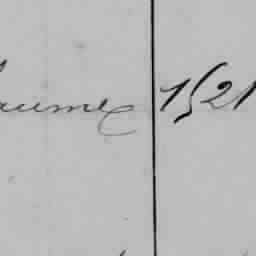 aume 1521